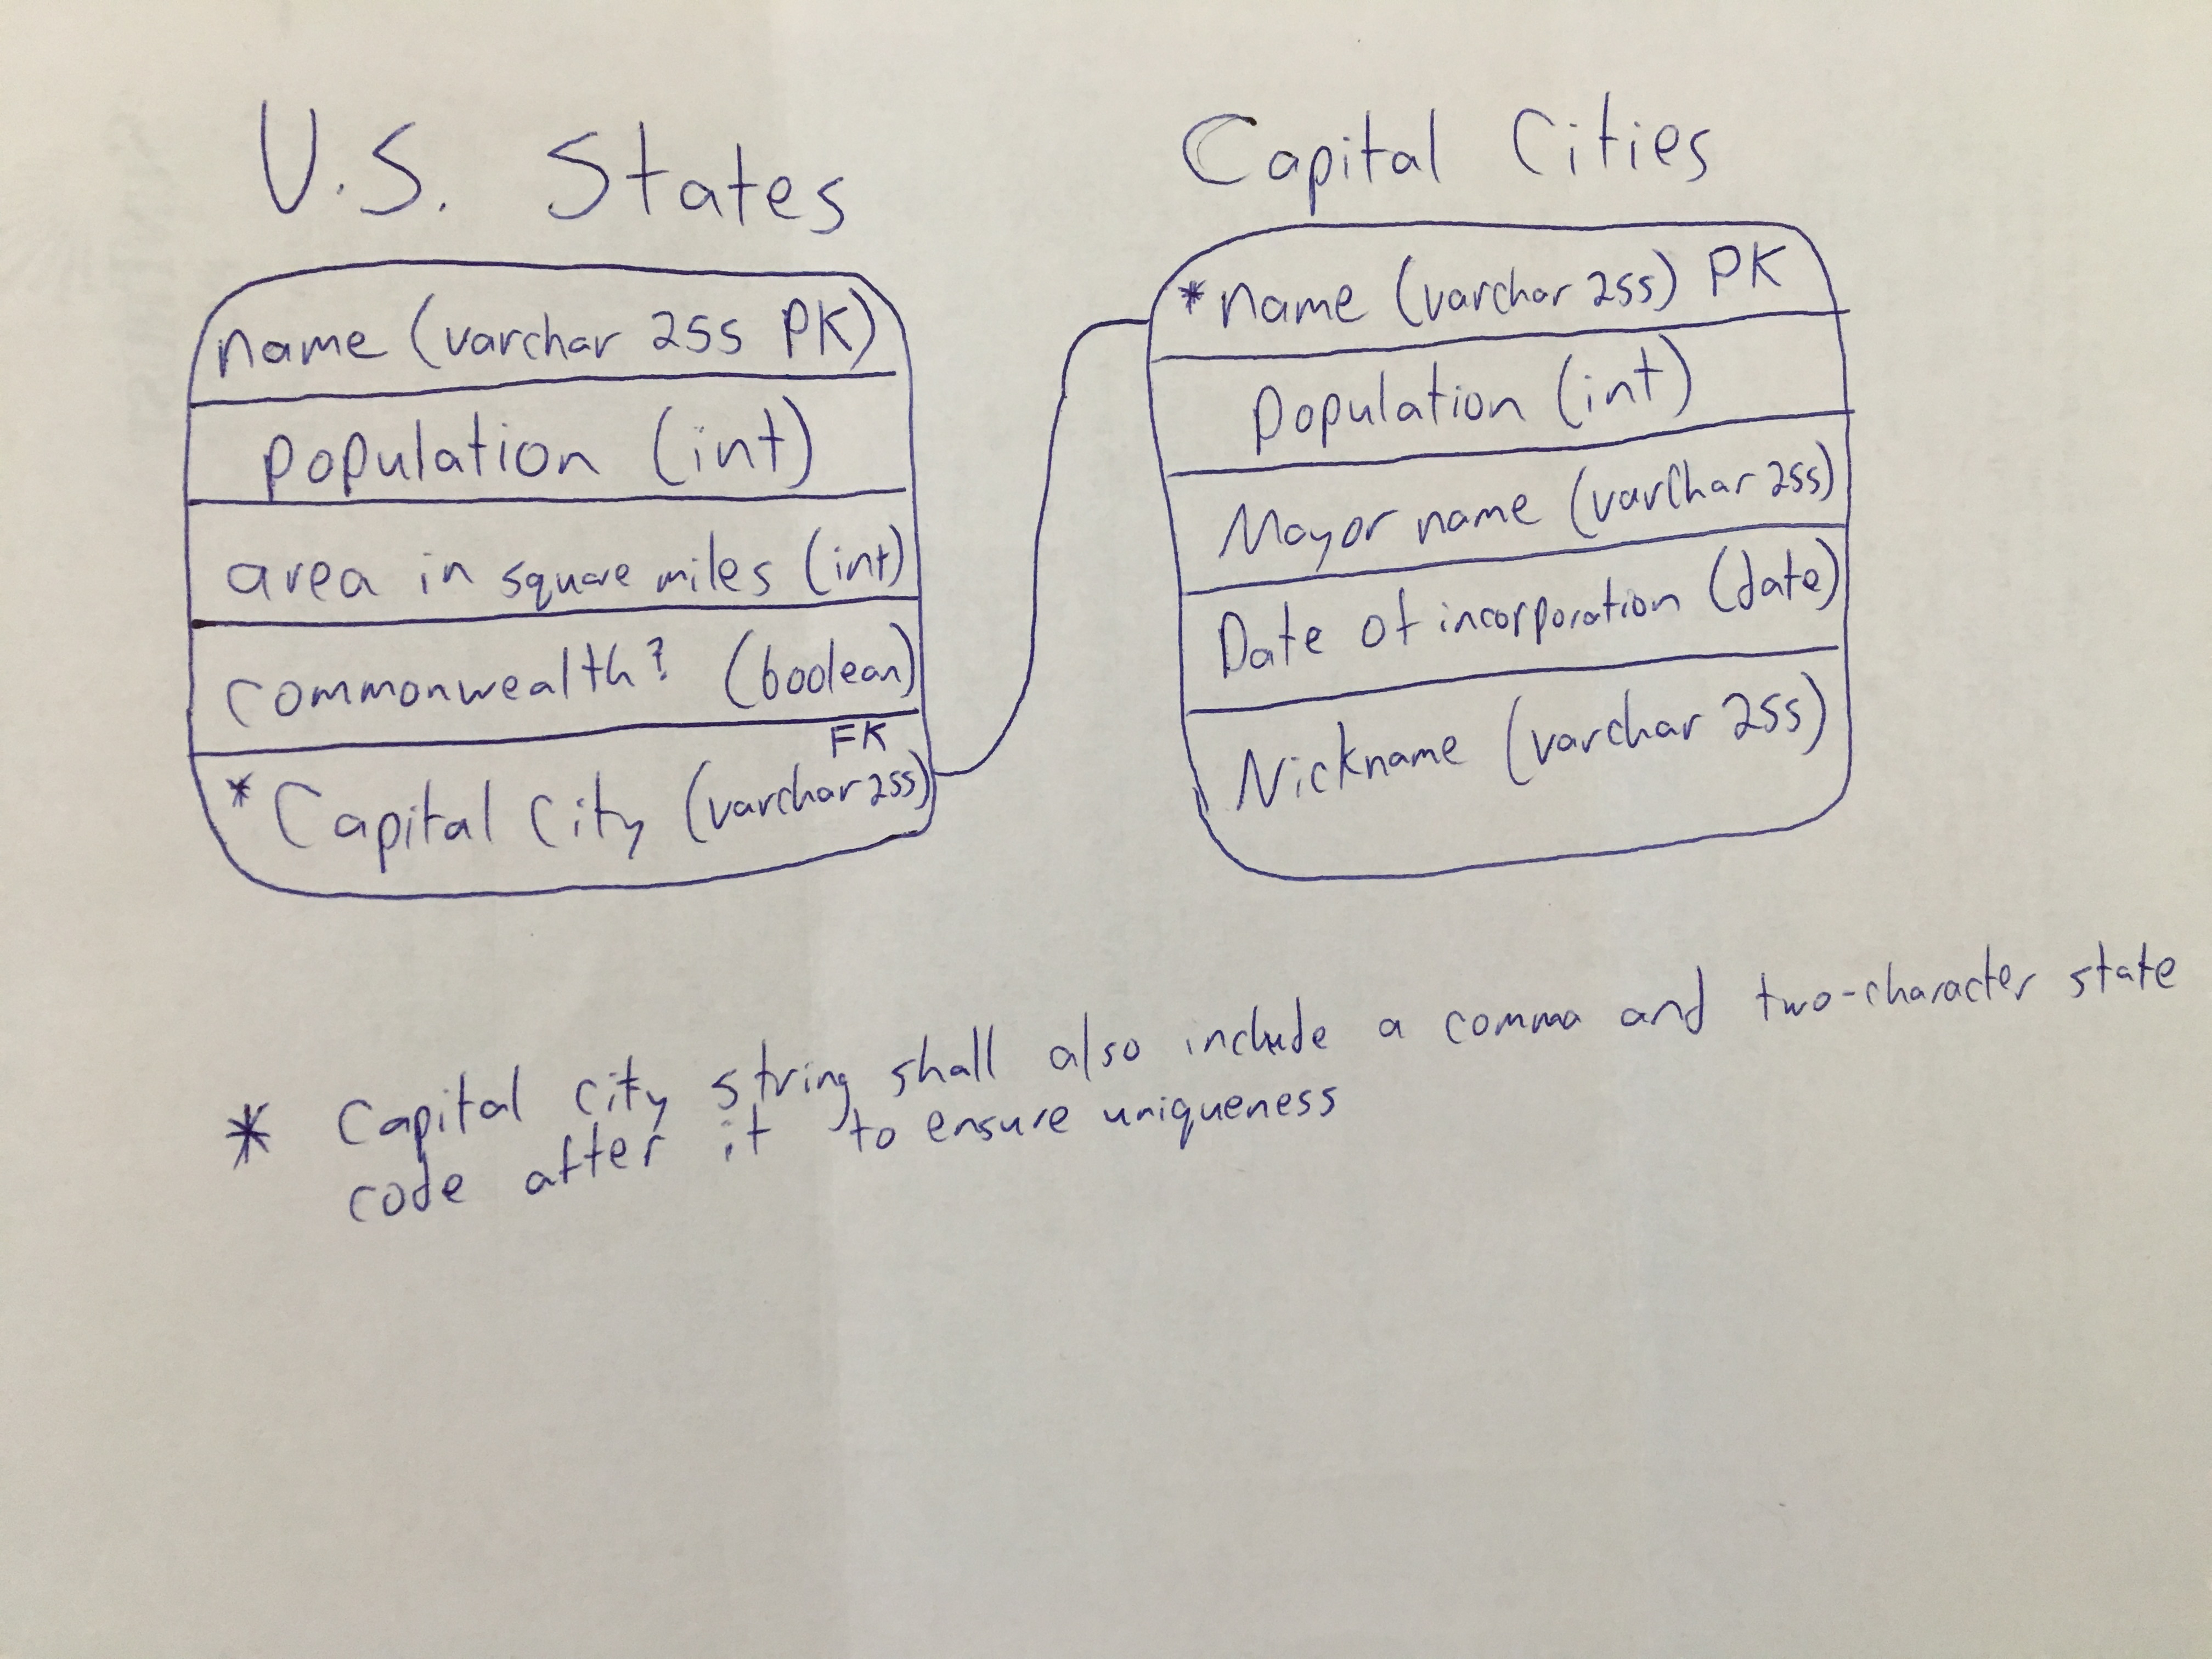 U.S. States
name (varchar 255 PK)
population (int)
area in square miles (int)
commonwealth? (boolean)
FK
*Capital City (varchar 255)
Capital Cities
*name (varchar 255) PK
population (int)
Mayor name (varchar 255)
Date of incorporation (date)
Nickname (varchar 255)
* Capital city string shall also include a comma and two-character state
code after it to ensure uniqueness
SUNTRUST